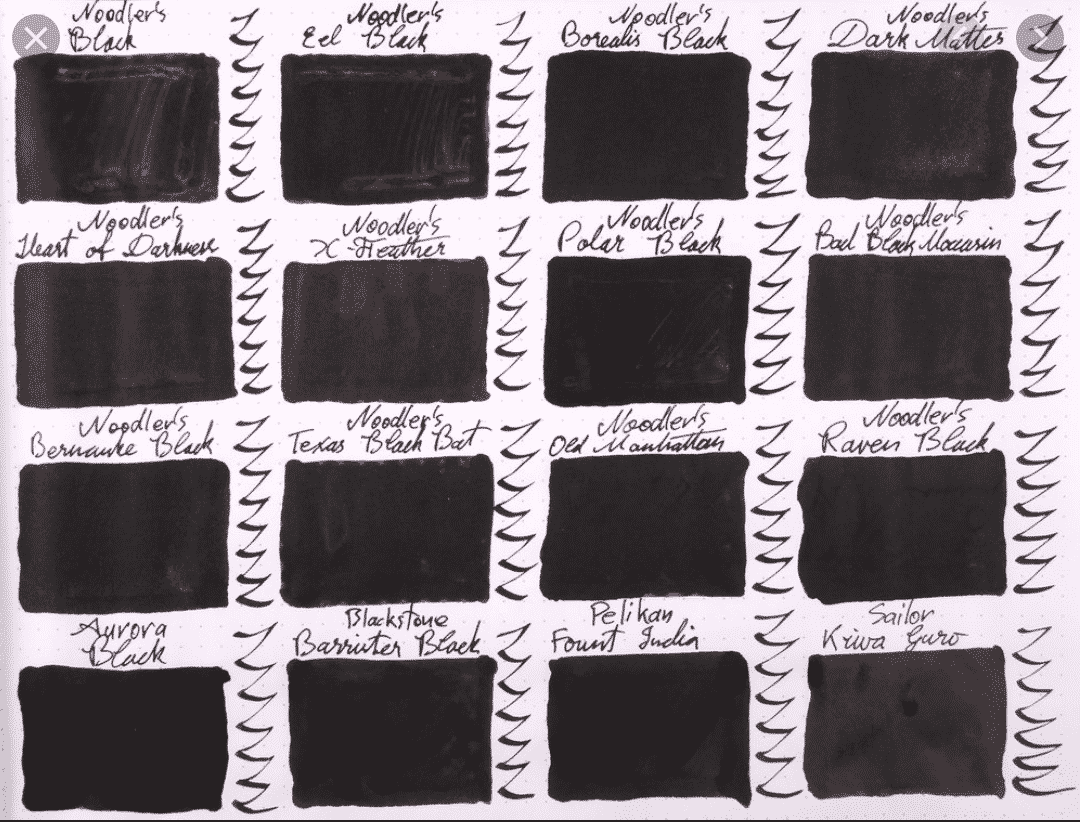 Noodler's
Black
Noodler's
Eel Black
Noodler's
Borealis Black
Noodler's
Dark Matter
Noodler's
Heart of Darkness
Noodler's
X-Feather
Noodler's
Polar Black
Noodler's
Bad Black Moccasin
Noodler's
Bernanke Black
Noodler's
Texas Black Bat
Noodler's
Old Manhattan
Noodler's
Raven Black
Aurora
Black
Blackstone
Barrister Black
Pelikan
Fount India
Sailor
Kiwa Guro